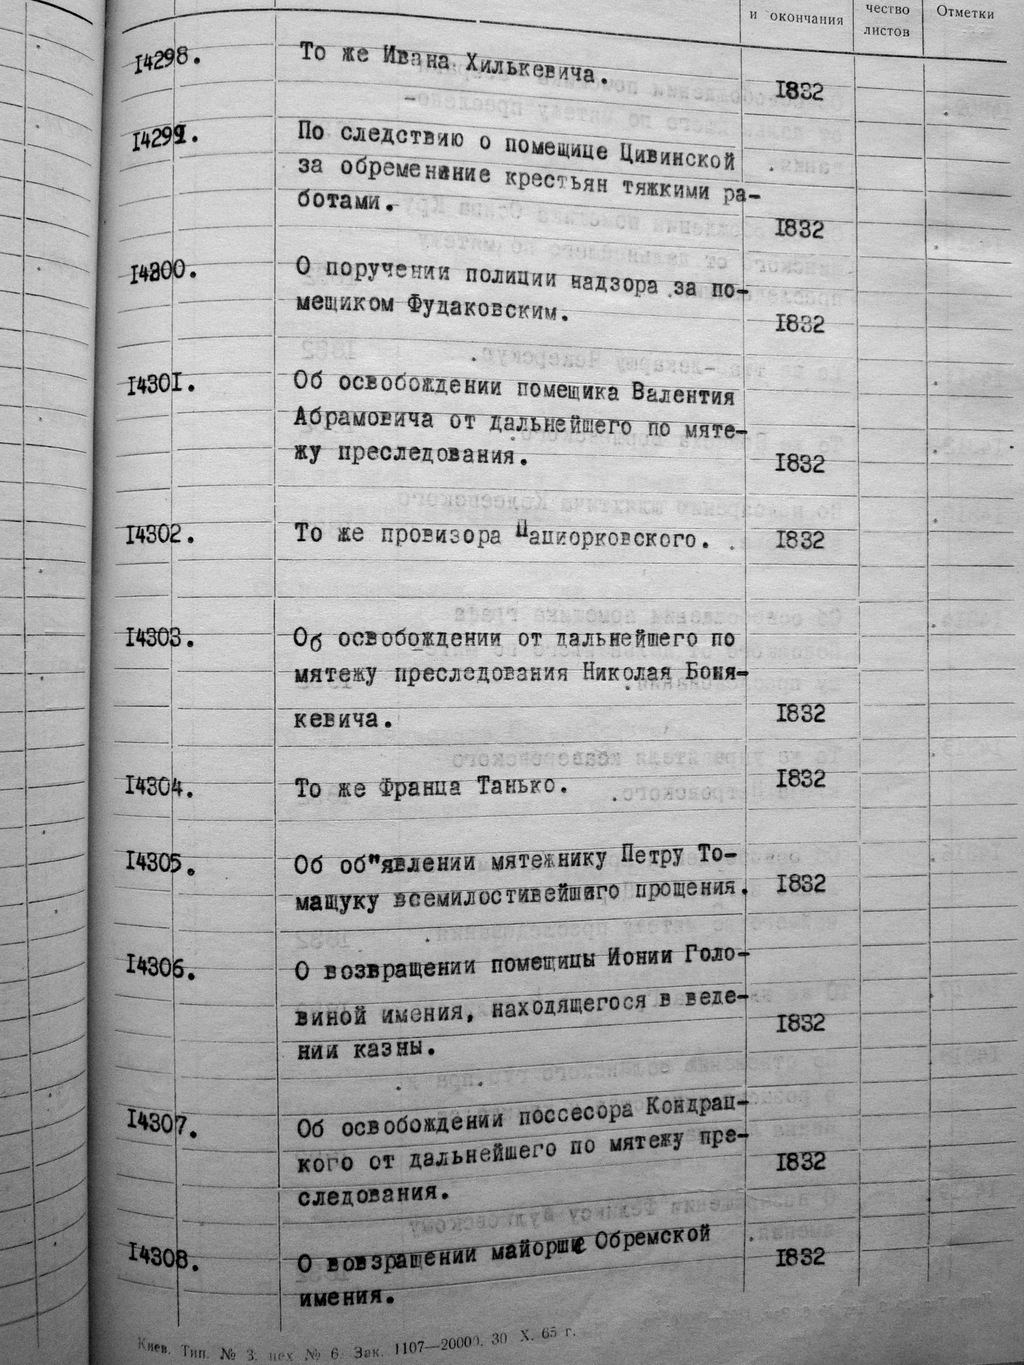 и окончания
чество
листов
Отметки
14298.
То же Ивана Хилькевича.
1832
14299.
По следствию о помещице Цивинской
за обременение крестьян тяжкими ра-
ботами.
1832
14300.
О поручении полиции надзора за по-
мещиком Фудаковским.
1832
14301.
Об освобождении помещика Валентия
Абрамовича от дальнейшего по мяте-
жу преследования.
1832
14302.
То же провизора Пациорковского.
1832
14303.
Об освобождении от дальнейшего по
мятежу преследования Николая Боня-
кевича.
1832
14304.
То же Франца Танько.
1832
14305.
Об об"явлении мятежнику Петру То-
мащуку всемилостивейшего прощения.
1832
14306.
О возвращении помещицы Ионии Голо-
виной имения, находящегося в веде-
нии казны.
1832
14307.
Об освобождении поссесора Кондрац-
кого от дальнейшего по мятежу пре-
следования.
1832
14308.
О возвращении майорше Обремской
имения.
1832
Киев. Тип. № 3. цех № 6. Зак. 1107—20000. 30 X. 65 г.